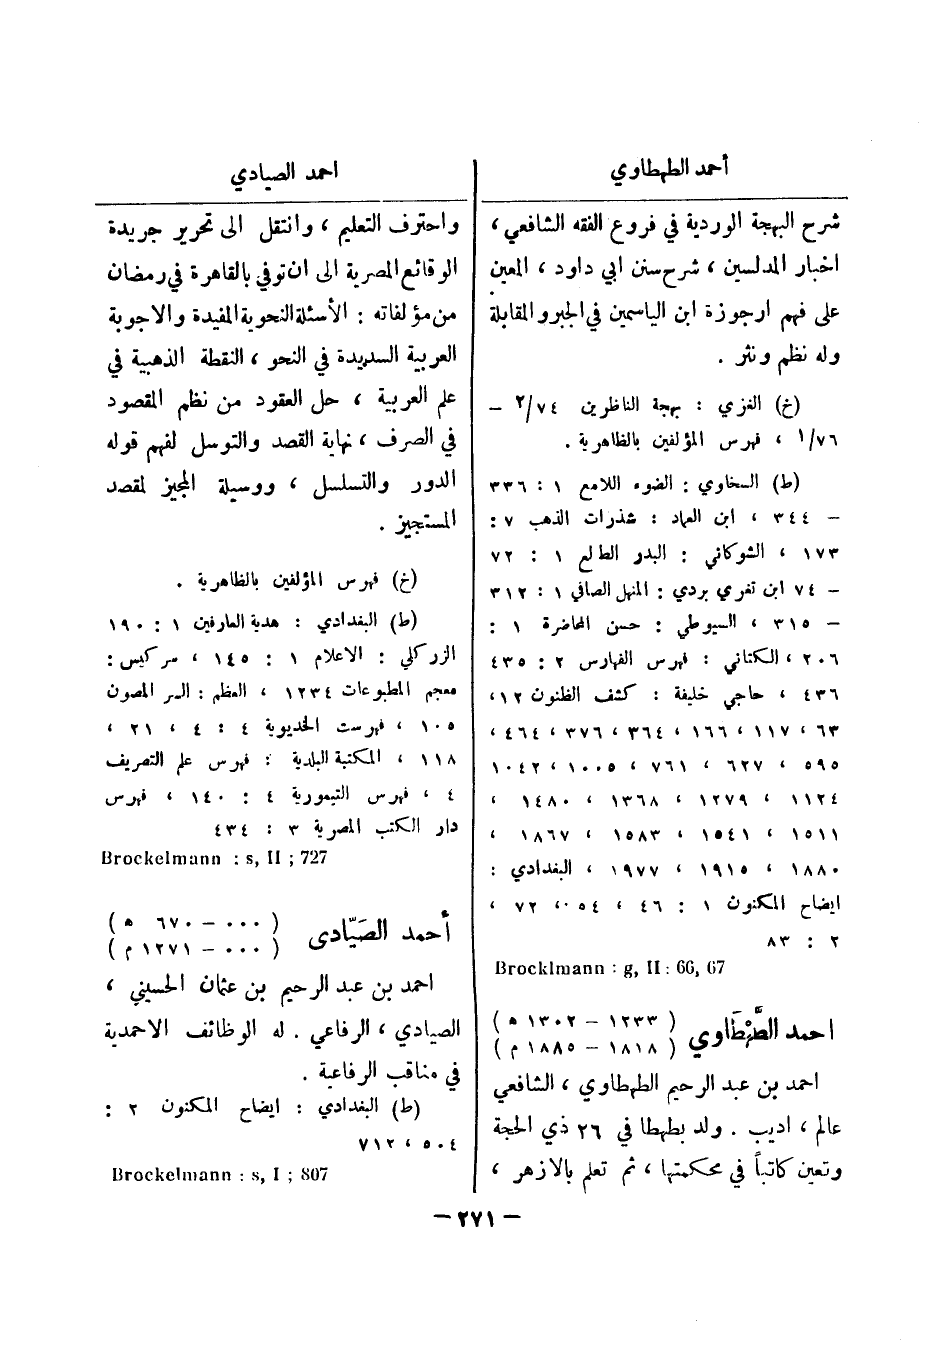 أحمد الطهطاوي
شرح البهجة الوردية في فروع الفقه الشافعي ،
اخبار المدلسين ، شرح سنن ابي داود ، المعين
على فهم ارجوزة ابن الياسمين في الجبر والمقابلة
وله نظم ونثر .
(خ) الغزي : بهجة الناظرين ٢/٧٤ –
١/٧٦ ، فهرس المؤلفين بالظاهرية .
(ط) السخاوي : الضوء اللامع ١ : ٣٣٦
– ٣٤٤ ، ابن العماد : شذرات الذهب ٧ :
١٧٣ ، الشوكاني : البدر الطالع ١ : ٧٢
– ٧٤ ابن تغري بردي : المنهل الصافي ١ : ٣١٢
– ٣١٥ ، السيوطي : حسن المحاضرة ١ :
٢٠٦ ، الكتاني : فهرس الفهارس ٢ : ٤٣٥
٤٣٦ ، حاجي خليفة : كشف الظنون ١٢ ،
٦٣ ، ١١٧ ، ١٦٦ ، ٣٦٤ ، ٣٧٦ ، ٤٦٤ ،
٥٩٥ ، ٦٢٧ ، ٧٦١ ، ١٠٠٥ ، ١٠٤٢
١١٢٤ ، ١٢٧٩ ، ١٣٦٨ ، ١٤٨٠ ،
١٥١١ ، ١٥٤١ ، ١٥٨٣ ، ١٨٦٧ ،
١٨٨٠ ، ١٩١٥ ، ١٩٧٧ ، البغدادي :
ايضاح المكنون ١ : ٤٦ ، ٥٤ ، ٧٢ ،
٢ : ٨٣
Brocklmann : g, II : 66, 67
احمد الطَّهْطَاوي ( ١٢٣٣ – ١٣٠٢ ه )
( ١٨١٨ – ١٨٨٥ م )
احمد بن عبد الرحيم الطهطاوي ، الشافعي
عالم ، اديب . ولد بطهطا في ٢٦ ذي الحجة
وتعين كاتباً في محكمتها ، ثم تعلم بالازهر ،
احمد الصيادي
واحترف التعليم ، وانتقل الى تحرير جريدة
الوقائع المصرية الى ان توفي بالقاهرة في رمضان
من مؤلفاته : الأسئلة النحوية المفيدة والاجوبة
العربية السديدة في النحو ، النقطة الذهبية في
علم العربية ، حل العقود من نظم المقصود
في الصرف ، نهاية القصد والتوسل لفهم قوله
الدور والتسلسل ، ووسيلة المجيز لمقصد
المستجيز .
(خ) فهرس المؤلفين بالظاهرية .
(ط) البغدادي : هدية العارفين ١ : ١٩٠
الزركلي : الاعلام ١ : ١٤٥ ، سركيس :
معجم المطبوعات ١٢٣٤ ، العظم : السر المصون
١٠٥ ، فهرست الخديوية ٤ : ٤ ، ٢١ ،
١١٨ ، المكتبة البلدية : فهرس علم التصريف
٤ ، فهرس التيمورية ٤ : ١٤٠ ، فهرس
دار الكتب المصرية ٣ : ٤٣٤
Brockelmann : s, II ; 727
أحمد الصَيّادى ( ٠٠٠ – ٦٧٠ ه )
( ٠٠٠ – ١٢٧١ م )
احمد بن عبد الرحيم بن عثمان الحسيني ،
الصيادي ، الرفاعي . له الوظائف الاحمدية
في مناقب الرفاعية .
(ط) البغدادي : ايضاح المكنون ٢ :
٥٠٤ ، ٧١٢
Brockelmann : s, I ; 807
– ٢٧١ –